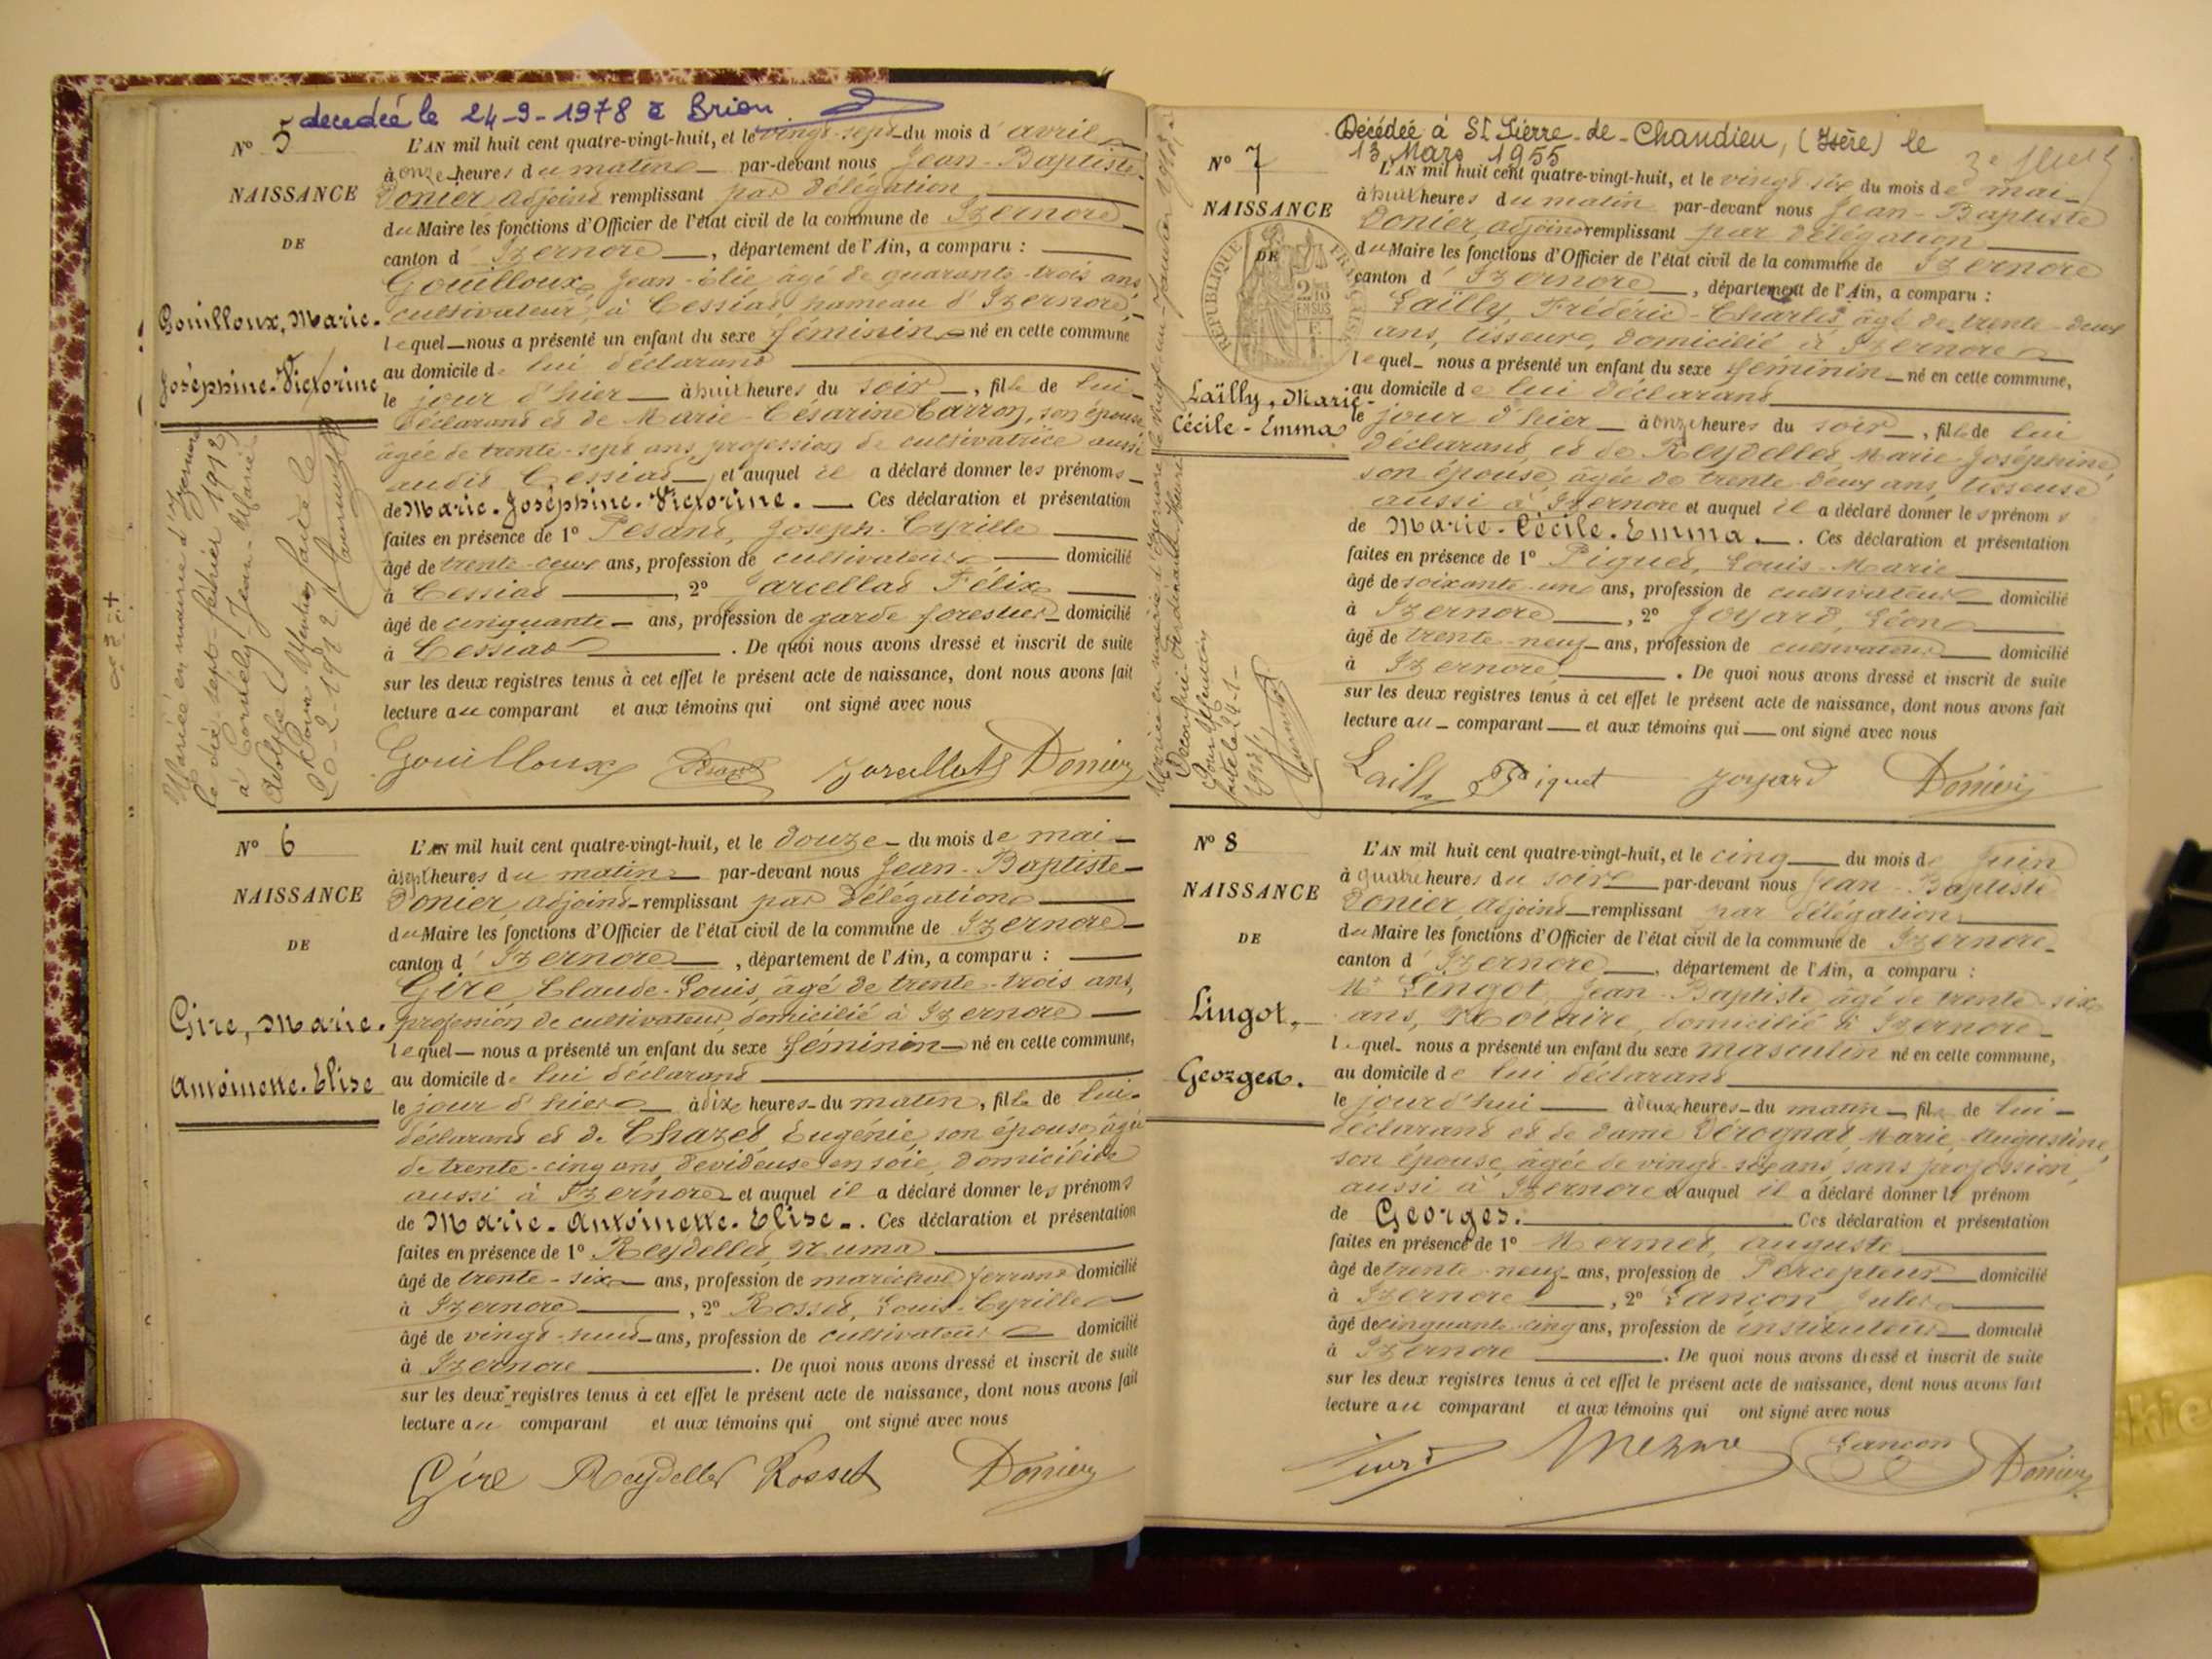 decedée le 24-9-1978 à Brion
Nº 5
NAISSANCE
DE
Gouilloux, Marie-
Joséphine-Victorine
L'AN mil huit cent quatre-vingt-huit, et le vingt-sept du mois d'avril
à onze heures du matin par-devant nous Jean-Baptiste
Donier, adjoint remplissant par délégation
du Maire les fonctions d'Officier de l'état civil de la commune de Izernore
canton d'Izernore, département de l'Ain, a comparu :
Gouilloux, Jean-Elie, âgé de quarante-trois ans
cultivateur, à Cessiat, hameau d'Izernore,
lequel nous a présenté un enfant du sexe féminin né en cette commune
au domicile de lui déclarant
le jour d'hier à huit heures du soir, fille de lui
déclarant et de Marie-Césarine Carron, son épouse
âgée de trente-sept ans profession de cultivatrice aussi
audit Cessiat et auquel il a déclaré donner les prénoms
de Marie-Joséphine-Victorine. Ces déclaration et présentation
faites en présence de 1º Pesant, Joseph-Cyrille
âgé de trente-deux ans, profession de cultivateur domicilié
à Cessiat, 2º Jarcellat Félix
âgé de cinquante ans, profession de garde forestier domicilié
à Cessiat. De quoi nous avons dressé et inscrit de suite
sur les deux registres tenus à cet effet le présent acte de naissance, dont nous avons fait
lecture au comparant et aux témoins qui ont signé avec nous
Gouilloux Pesant Jarcellat Donier
Mariée en mairie d'Izernore
le dix sept février 1912
à Cornély Jean-Marie
Adolphe
Pour Mention faite le
20-2-1912
Nº 6
NAISSANCE
DE
Gire, Marie-
Antoinette-Elise
L'AN mil huit cent quatre-vingt-huit, et le douze du mois de mai
à sept heures du matin par-devant nous Jean-Baptiste
Donier, adjoint remplissant par délégation
du Maire les fonctions d'Officier de l'état civil de la commune de Izernore
canton d'Izernore, département de l'Ain, a comparu :
Gire, Claude-Louis, âgé de trente-trois ans,
profession de cultivateur, domicilié à Izernore
lequel nous a présenté un enfant du sexe féminin né en cette commune,
au domicile de lui déclarant
le jour d'hier à dix heures du matin, fille de lui
déclarant et de Chazet Eugénie, son épouse, âgée
de trente-cinq ans, dévideuse en soie, domiciliée
aussi à Izernore et auquel il a déclaré donner les prénoms
de Marie-Antoinette-Elise. Ces déclaration et présentation
faites en présence de 1º Reydellet, Numa
âgé de trente-six ans, profession de maréchal ferrant domicilié
à Izernore, 2º Rosset, Louis-Cyrille
âgé de vingt-neuf ans, profession de cultivateur domicilié
à Izernore. De quoi nous avons dressé et inscrit de suite
sur les deux registres tenus à cet effet le présent acte de naissance, dont nous avons fait
lecture au comparant et aux témoins qui ont signé avec nous
Gire Reydellet Rosset Donier
Décédée à St Pierre-de-Chandieu, (Isère) le
13 Mars 1955
Nº 7
NAISSANCE
DE
RÉPUBLIQUE FRANÇAISE
Laïlly, Marie-
Cécile-Emma
L'AN mil huit cent quatre-vingt-huit, et le vingt-six du mois de mai
à huit heures du matin par-devant nous Jean-Baptiste
Donier, adjoint remplissant par délégation
du Maire les fonctions d'Officier de l'état civil de la commune de Izernore
canton d'Izernore, département de l'Ain, a comparu :
Laïlly, Frédéric-Charles, âgé de trente-deux
ans, tisseur, domicilié à Izernore
lequel nous a présenté un enfant du sexe féminin né en cette commune,
au domicile de lui déclarant
le jour d'hier à onze heures du soir, fille de lui
déclarant, et de Reydellet Marie-Joséphine,
son épouse, âgée de trente-deux ans, tisseuse
aussi à Izernore et auquel il a déclaré donner les prénoms
de Marie-Cécile-Emma. Ces déclaration et présentation
faites en présence de 1º Piquet, Louis-Marie
âgé de soixante-un ans, profession de cultivateur domicilié
à Izernore, 2º Joyard, Léon
âgé de trente-neuf ans, profession de cultivateur domicilié
à Izernore. De quoi nous avons dressé et inscrit de suite
sur les deux registres tenus à cet effet le présent acte de naissance, dont nous avons fait
lecture au comparant et aux témoins qui ont signé avec nous
Lailly Piquet Joyard Donier
Pour Mention
faite le 24-1-
Nº 8
NAISSANCE
DE
Lingot,
Georges.
L'AN mil huit cent quatre-vingt-huit, et le cinq du mois de Juin
à quatre heures du soir par-devant nous Jean-Baptiste
Donier, adjoint remplissant par délégation
du Maire les fonctions d'Officier de l'état civil de la commune de Izernore
canton d'Izernore, département de l'Ain, a comparu :
Mr Lingot, Jean-Baptiste âgé de trente-six
ans, Notaire, domicilié à Izernore
lequel nous a présenté un enfant du sexe masculin né en cette commune,
au domicile de lui déclarant
le jourd'hui à deux heures du matin, fils de lui
déclarant et de dame Dérognat Marie-Augustine,
son épouse, âgée de vingt-six ans, sans profession,
aussi à Izernore et auquel il a déclaré donner le prénom
de Georges. Ces déclaration et présentation
faites en présence de 1º Mermet, Auguste
âgé de trente-neuf ans, profession de Percepteur domicilié
à Izernore, 2º Lançon Jules
âgé de cinquante-cinq ans, profession de instituteur domicilié
à Izernore. De quoi nous avons dressé et inscrit de suite
sur les deux registres tenus à cet effet le présent acte de naissance, dont nous avons fait
lecture au comparant et aux témoins qui ont signé avec nous
Lançon Donier